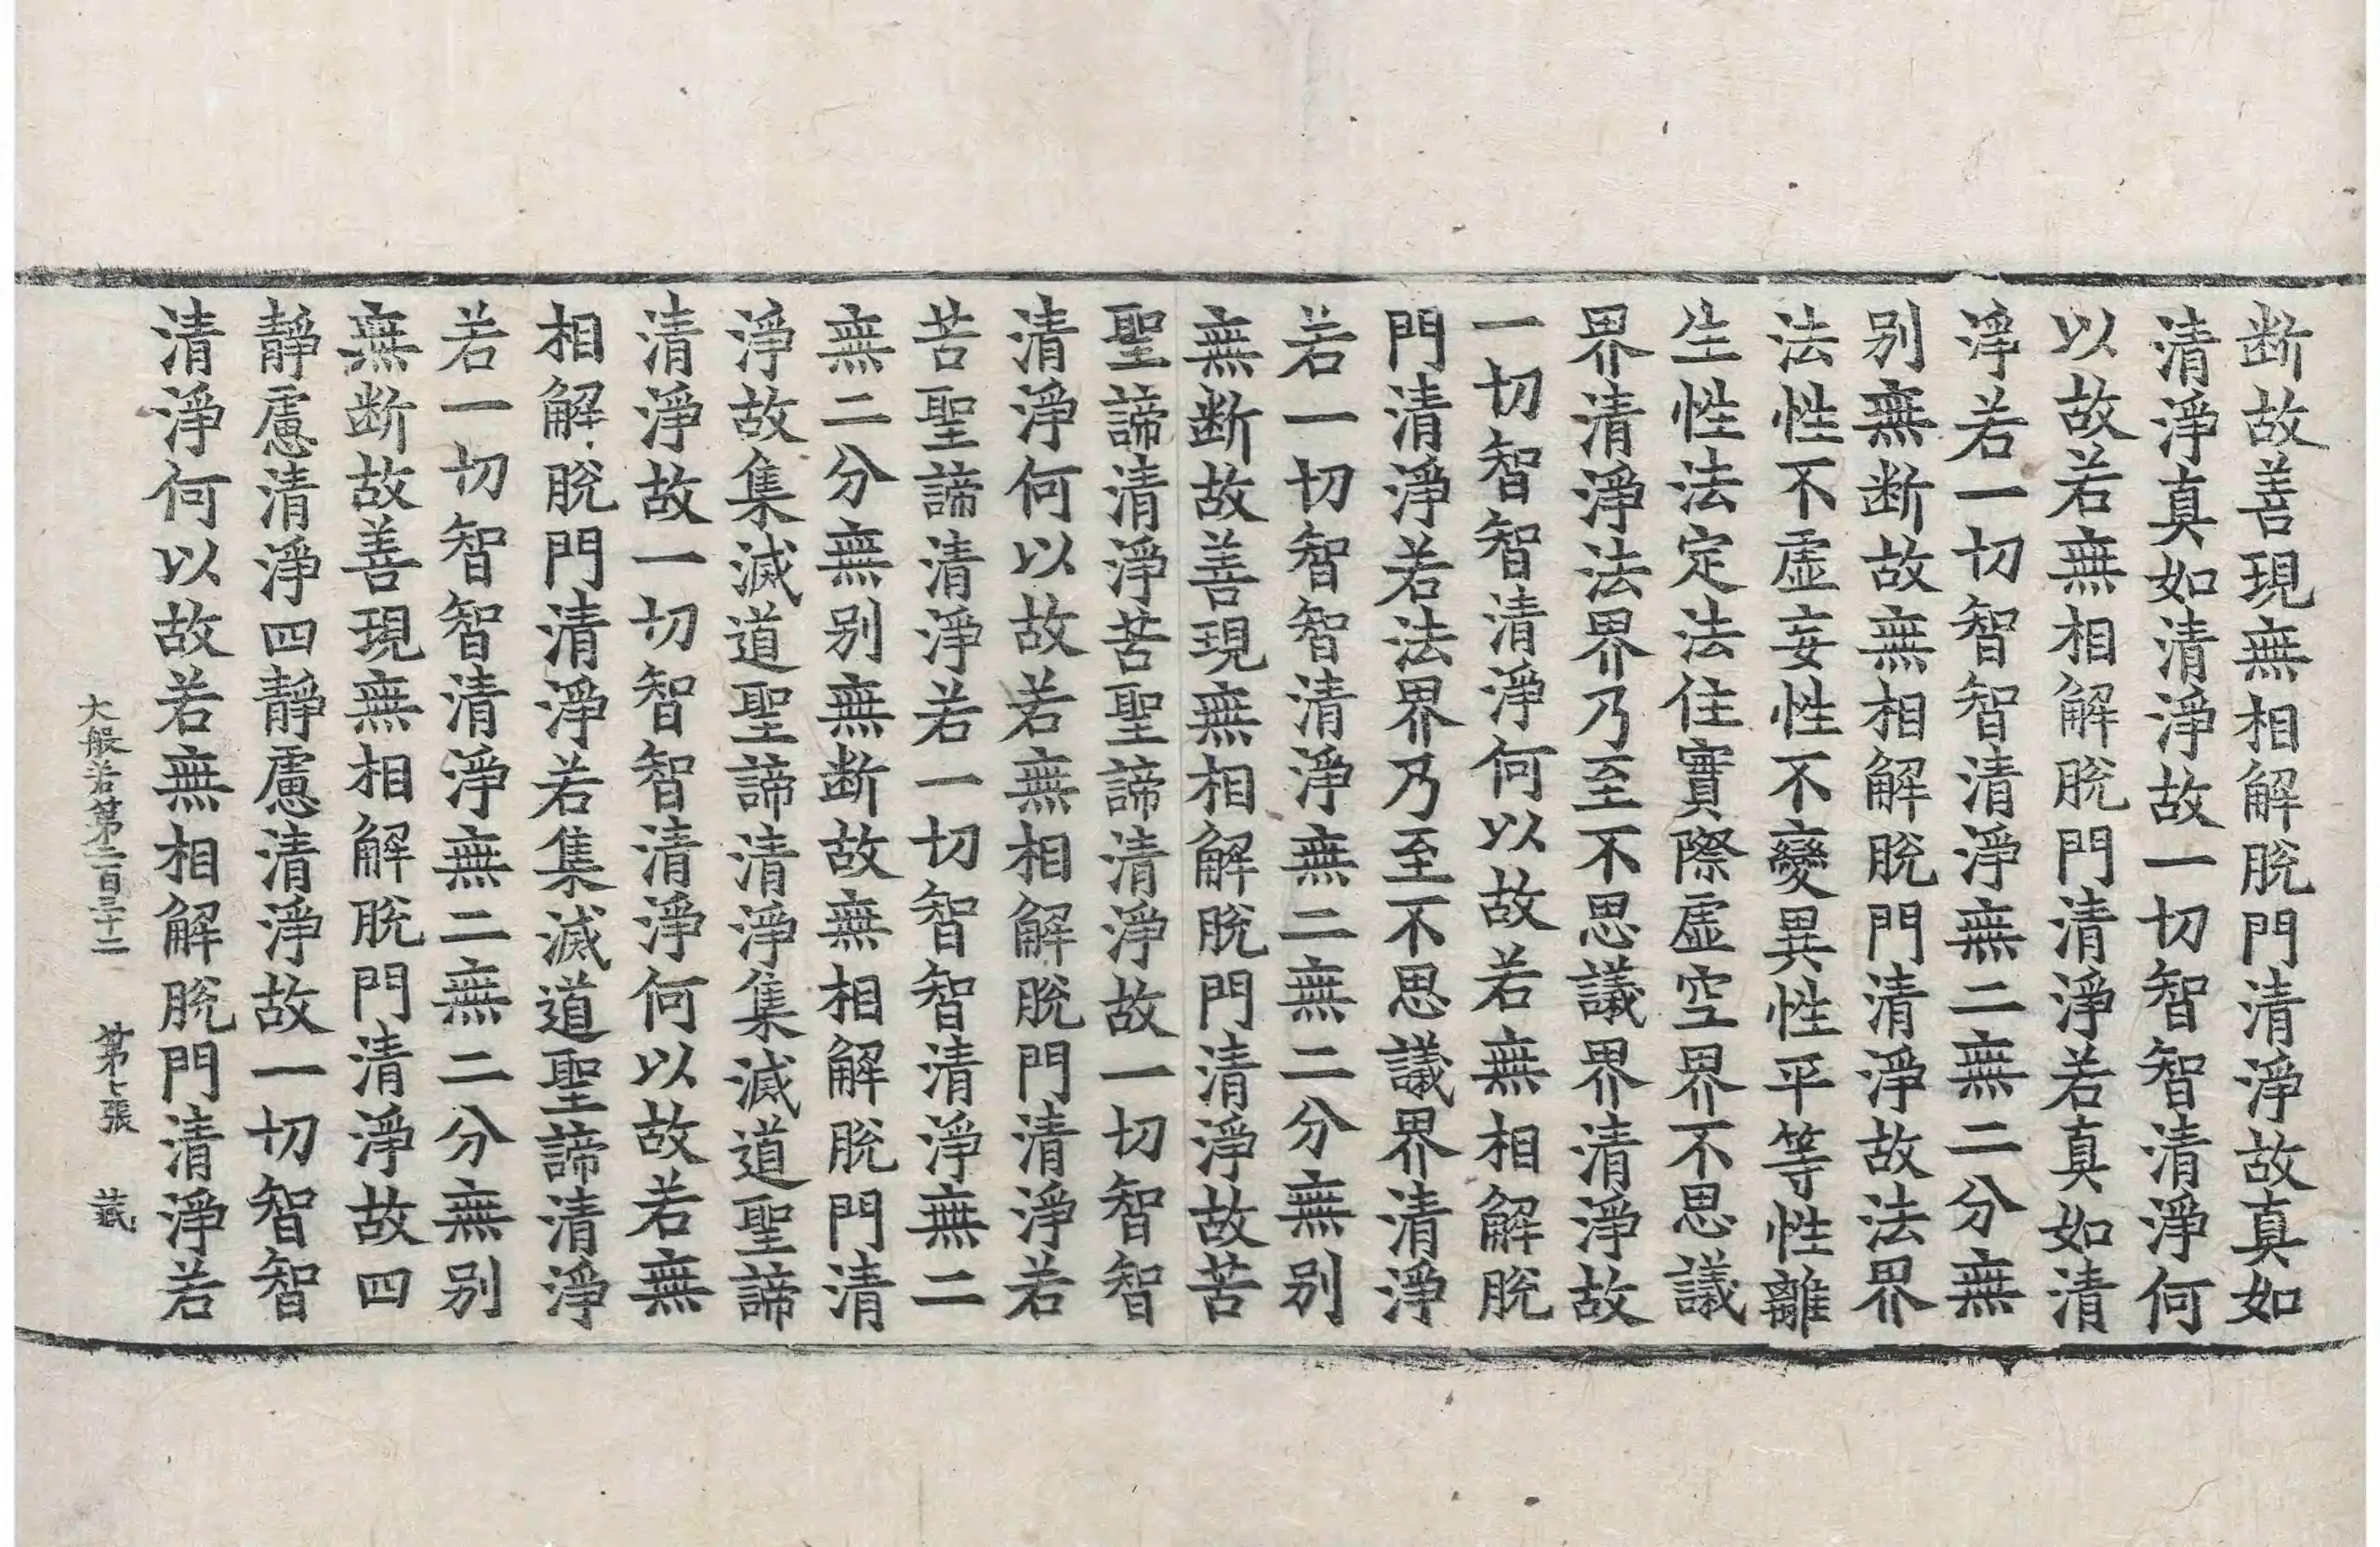 断故善現無相解脫門清淨故真如
清淨真如清淨故一切智智清淨何
以故若無相解脫門清淨若真如清
淨若一切智智清淨無二無二分無
别無断故無相解脫門清淨故法界
法性不虛妄性不變異性平等性離
生性法定法住實際虛空界不思議
界清淨法界乃至不思議界清淨故
一切智智清淨何以故若無相解脫
門清淨若法界乃至不思議界清淨
若一切智智清淨無二無二分無别
無断故善現無相解脫門清淨故苦
聖諦清淨苦聖諦清淨故一切智智
清淨何以故若無相解脫門清淨若
苦聖諦清淨若一切智智清淨無二
無二分無别無断故無相解脫門清
淨故集滅道聖諦清淨集滅道聖諦
清淨故一切智智清淨何以故若無
相解脫門清淨若集滅道聖諦清淨
若一切智智清淨無二無二分無别
無断故善現無相解脫門清淨故四
靜慮清淨四靜慮清淨故一切智智
清淨何以故若無相解脫門清淨若
大般若第二百三十二 第七張